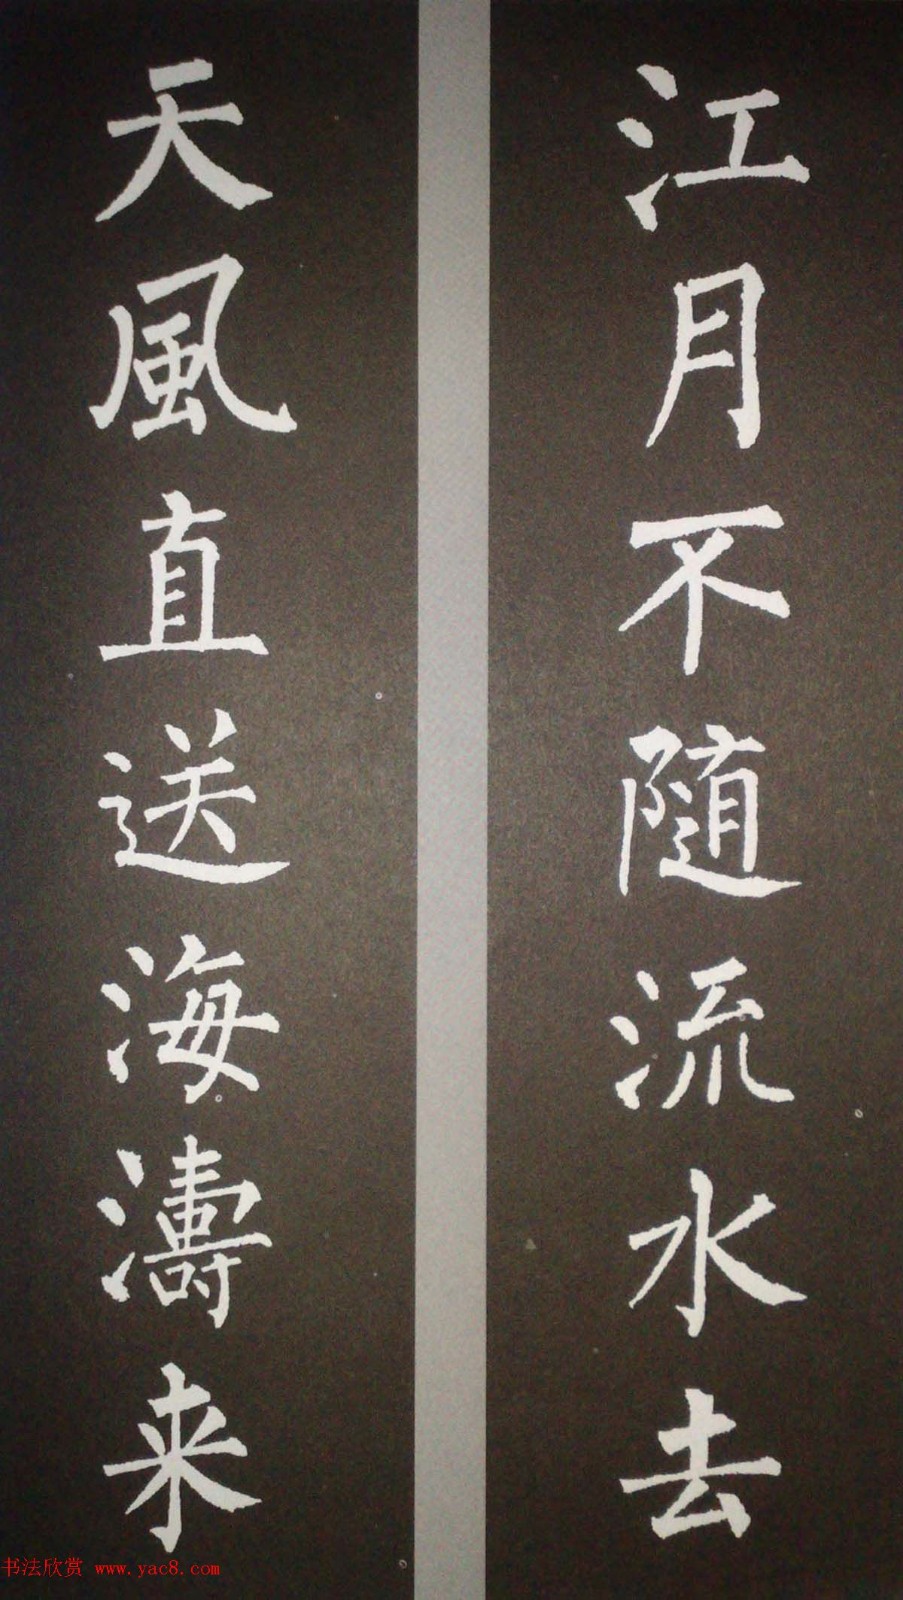 江月不随流水去
天風直送海濤来
书法欣赏 www.yac8.com